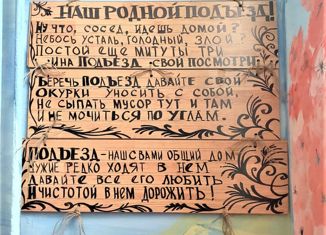 НАШ РОДНОЙ ПОДЪЕЗД!
НУ ЧТО, СОСЕД, ИДЕШЬ ДОМОЙ?
НЕБОСЬ УСТАЛЬ, ГОЛОДНЫЙ, ЗЛОЙ?
ПОСТОЙ ЕЩЕ МИТУТЫ ТРИ
И НА ПОДЪЕЗД СВОЙ ПОСМОТРИ.
БЕРЕЧЬ ПОДЪЕЗД ДАВАЙТЕ СВОЙ
ОКУРКИ УНОСИТЬ С СОБОЙ,
НЕ СЫПАТЬ МУСОР ТУТ И ТАМ
И НЕ МОЧИТЬСЯ ПО УГЛАМ.
ПОДЪЕЗД - НАШ С ВАМИ ОБЩИЙ ДОМ
ЧУЖИЕ РЕДКО ХОДЯТ В НЕМ
ДАВАЙТЕ ВСЕ ЕГО ЛЮБИТЬ
И ЧИСТОТОЙ В НЕМ ДОРОЖИТЬ!